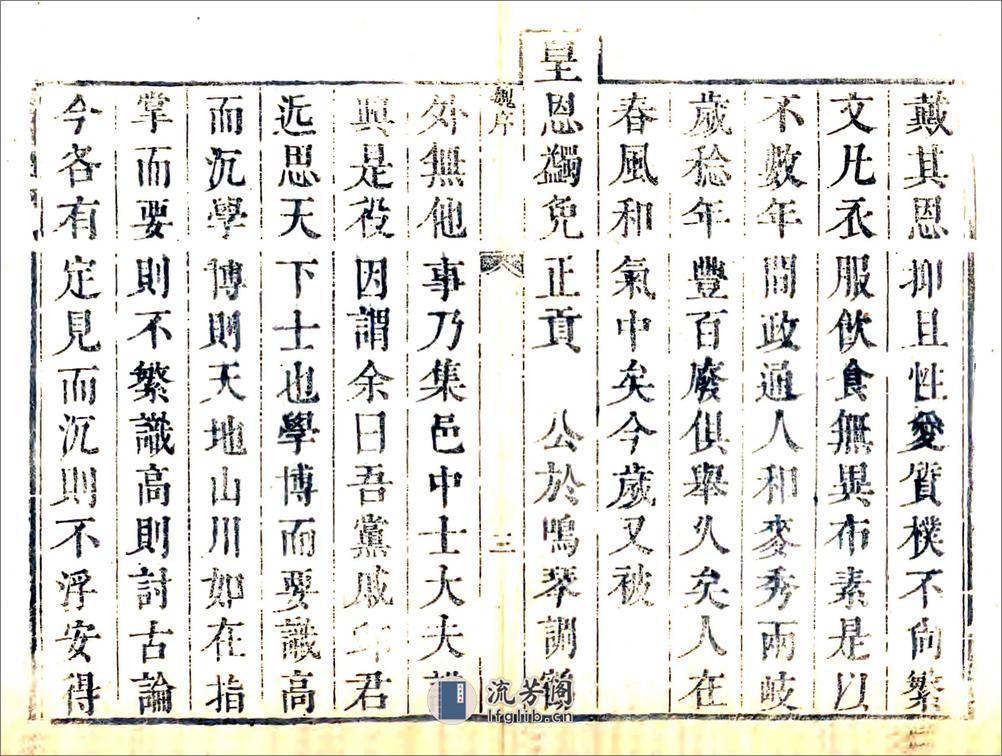 戴其恩抑且性愛質樸不尚繁
文凡衣服飲食無異布素是以
不數年間政通人和麥秀兩岐
歲稔年豐百廢俱舉久矣人在
春風和氣中矣今歲又被
皇恩蠲免正貢 公於鳴琴調鶴
魏序 三
外無他事乃集邑中士大夫
興是役因謂余曰吾黨戚卬君
近思天下士也學博而要識高
而沉學博則天地山川如在指
掌而要則不繁識高則討古論
今各有定見而沉則不浮安得
流芳閣
lfglib.cn